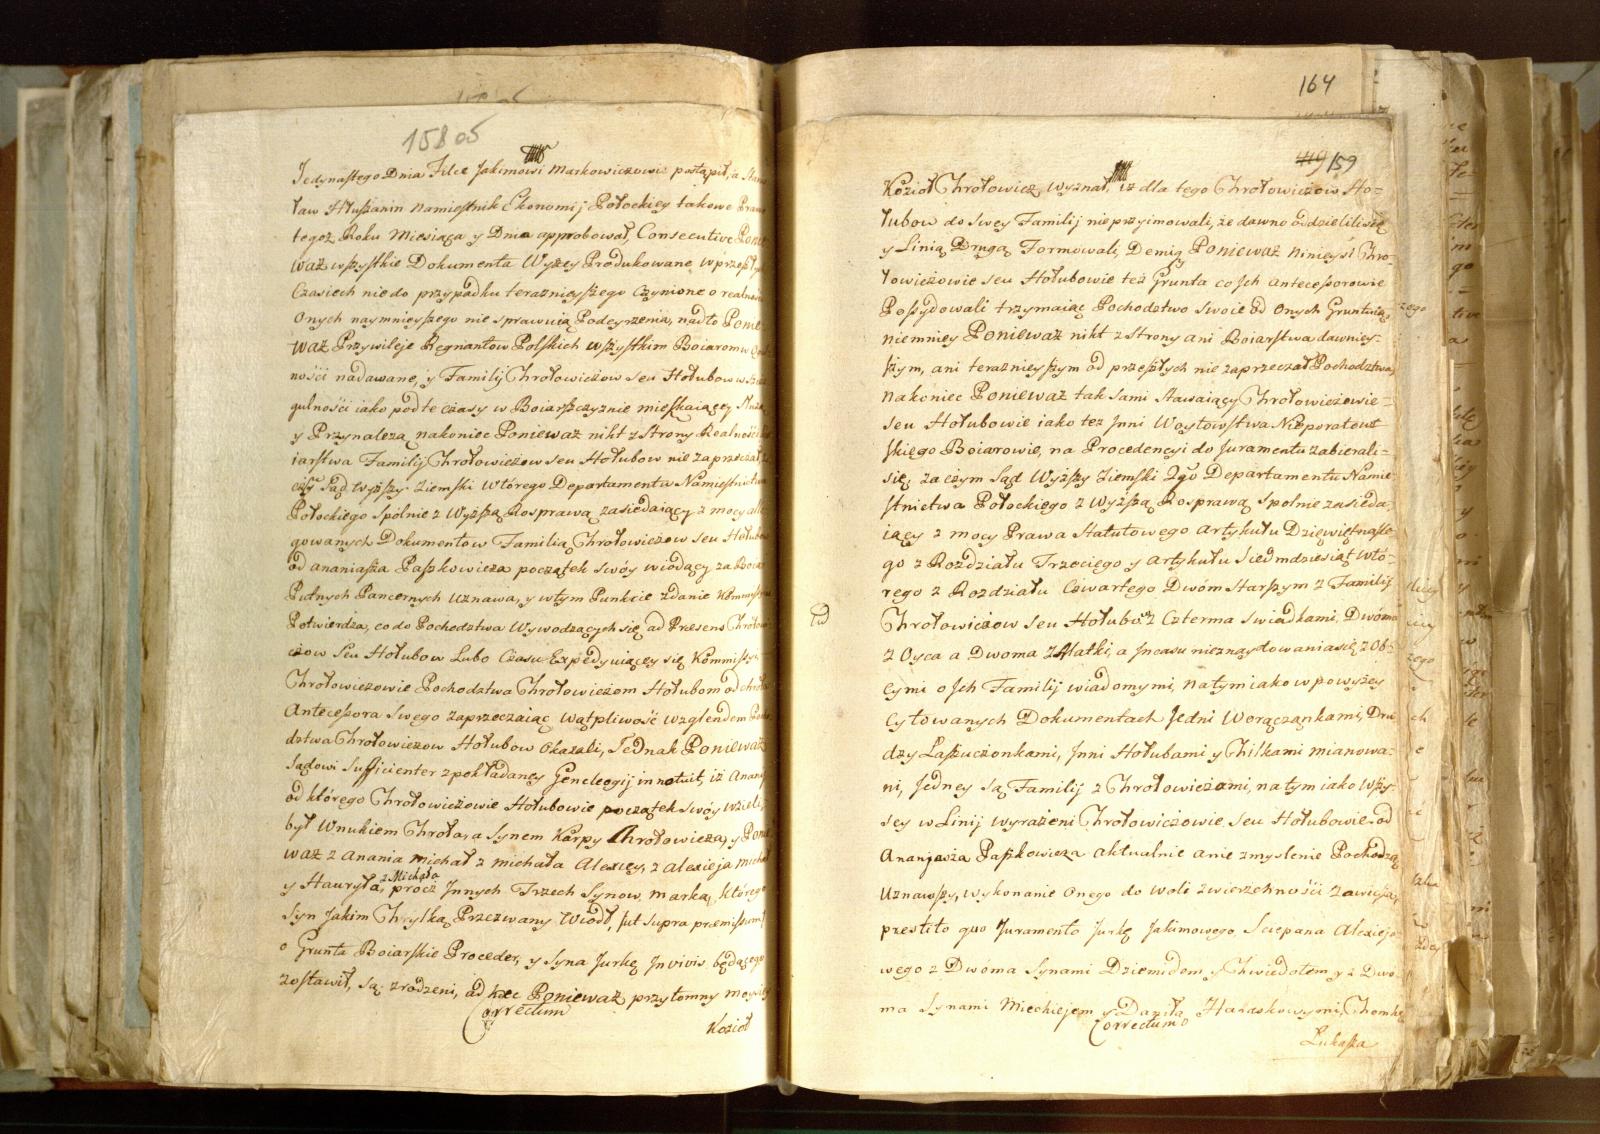 15805
Jedynastego Dnia Filce Jakimowi Markowiczowi postąpił, a Stani
sław Hłuszanin Namiestnik Ekonomij Połockiey takowe Prawo
tegoż Roku Miesiąca y Dnia approbował, Consecutive Ponie
waż wszystkie Dokumenta Wyżey Produkowane w przeszłych
Czasiech nie do przypadku teraznieyszego Czynione o realności
Onych naymnieyszego nie sprawuią Podeyrzenia, nadto Ponie
waż Przywileje Regnantow Polskich wszystkim Boiarom w
ności nadawane, y Familij Chrołowiczow seu Hołubow w szcze
gulności iako podte czasy w Boiarszczyznie mieszkaiącey służą
y Przynależą, nakoniec Poniewaz nikt z Strony Realności Bo
iarstwa Familij Chrołowiczow seu Hołubow nie zaprzeczał,
Sąd Wyższy Ziemski Wtórego Departamentu Namiestnictwa
Połockiego Spólnie z Wyższą Rosprawą zasiedaiący z mocy alle
gowanych Dokumentow Familią Chrołowiczow seu Hołubow
od Ananiasza Paszkowicza początek swóy wiodący za Boiar
Putnych Pancernych uznawa, y w tym Punkcie zdanie Kommissyi
Potwierdza, co do Pochodztwa Wywodzących się, ad Presens Chrołowi
czow Seu Hołubow Lubo Czasu Expedyuiącey się Kommissyi
Chrołowiczowie Pochodztwa Chrołowiczom Hołubom od Chroła
Antecessora Swego zaprzeczaiąc wątpliwość względem Pocho
dztwa Chrołowiczow Hołubow okazali, Jednak Poniewaz
Sądowi sufficienter z pokładaney Geneleogij innotuit, iż Anani
od którego Chrołowiczowie Hołubowie początek Swóy wzieli,
był Wnukiem Chroła, a Synem Karpy Chrołowicza, y Ponie
waż z Anania Michał z Michała Alexiey, z Alexieja Michał
z Michała
y Hauryła, prócz Jnnych Trzech Synow, Marka, którego
Syn Jakim Chwylką Przezwany Wiodł, /ut supra præmissum/
o Grunta Boiarskie Proceder, y Syna Jurkę Jn vivis będącego
zostawił, są zrodzeni, ad hæc Poniewaz przytomny
Correctum
Kozioł
164
419 159
Kozioł Chrołowicz, wyznał, iż dla tego Chrołowiczow Ho-
łubow do swey Familij nie przyimowali, że dawno oddzielili się
y Linią Drugą Formowali, Demiq Poniewaz Ninieysi Chro-
łowiczowie seu Hołubowie też Grunta co Jch Antecessorowie
Possydowali trzymaiąc Pochodztwo swoie od Onych Gruntuią
niemniey Poniewaz nikt z Strony ani Boiarstwa dawniey-
szym, ani teraznieyszym od przeszłych nie zaprzeczał Pochodztwa,
Nakoniec Poniewaz tak sami Stawaiący Chrołowiczowie
seu Hołubowie iako tez Jnni Woytowstwa Nieporotow-
skiego Boiarowie, na Procedencyi do Juramentu zabierali-
się, Zaczym Sąd Wyższy Ziemski 2go Departamentu Namie
stnictwa Połockiego z Wyższą Rosprawą Spolnie zasieda-
iący z mocy Prawa Statutowego Artykułu Dziewiętnaste
go z Rozdziału Trzeciego y Artykułu Siedmdziesiąt Wtó-
rego z Rozdziału Czwartego Dwóm Starszym z Familij
Chrołowiczow seu Hołubow z Czterma Swiadkami, Dwóma
z Oyca a Dwoma z Matki, a Jncasu nieznaydowania się, z Ob-
cymi o Jch Familij wiadomymi, na tym iako w powyżey
Cytowanych Dokumentach Jedni Worączankami, Dru
dzy Łaszuczonkami, Jnni Hołubami y Chilkami mianowa-
ni, Jedney są Familij z Chrołowiczami, na tym iako wszy-
scy w Linij wyrażeni Chrołowiczowie, seu Hołubowie od
Ananjasza Paszkowicza aktualnie a nie zmyslenie Pochodzą
Uznawszy, wykonanie Onego do woli zwierzchności zawiesza,
prestito quo Juramento Jurkę Jakimowego, Sciepana Alexieio-
wego z Dwóma Synami Dziemidem y Chwiedotem, y z Dwo-
ma Synami Mieckiejem y Daniłą Haraskowymi, Chomkę
Correctum
Łukasza